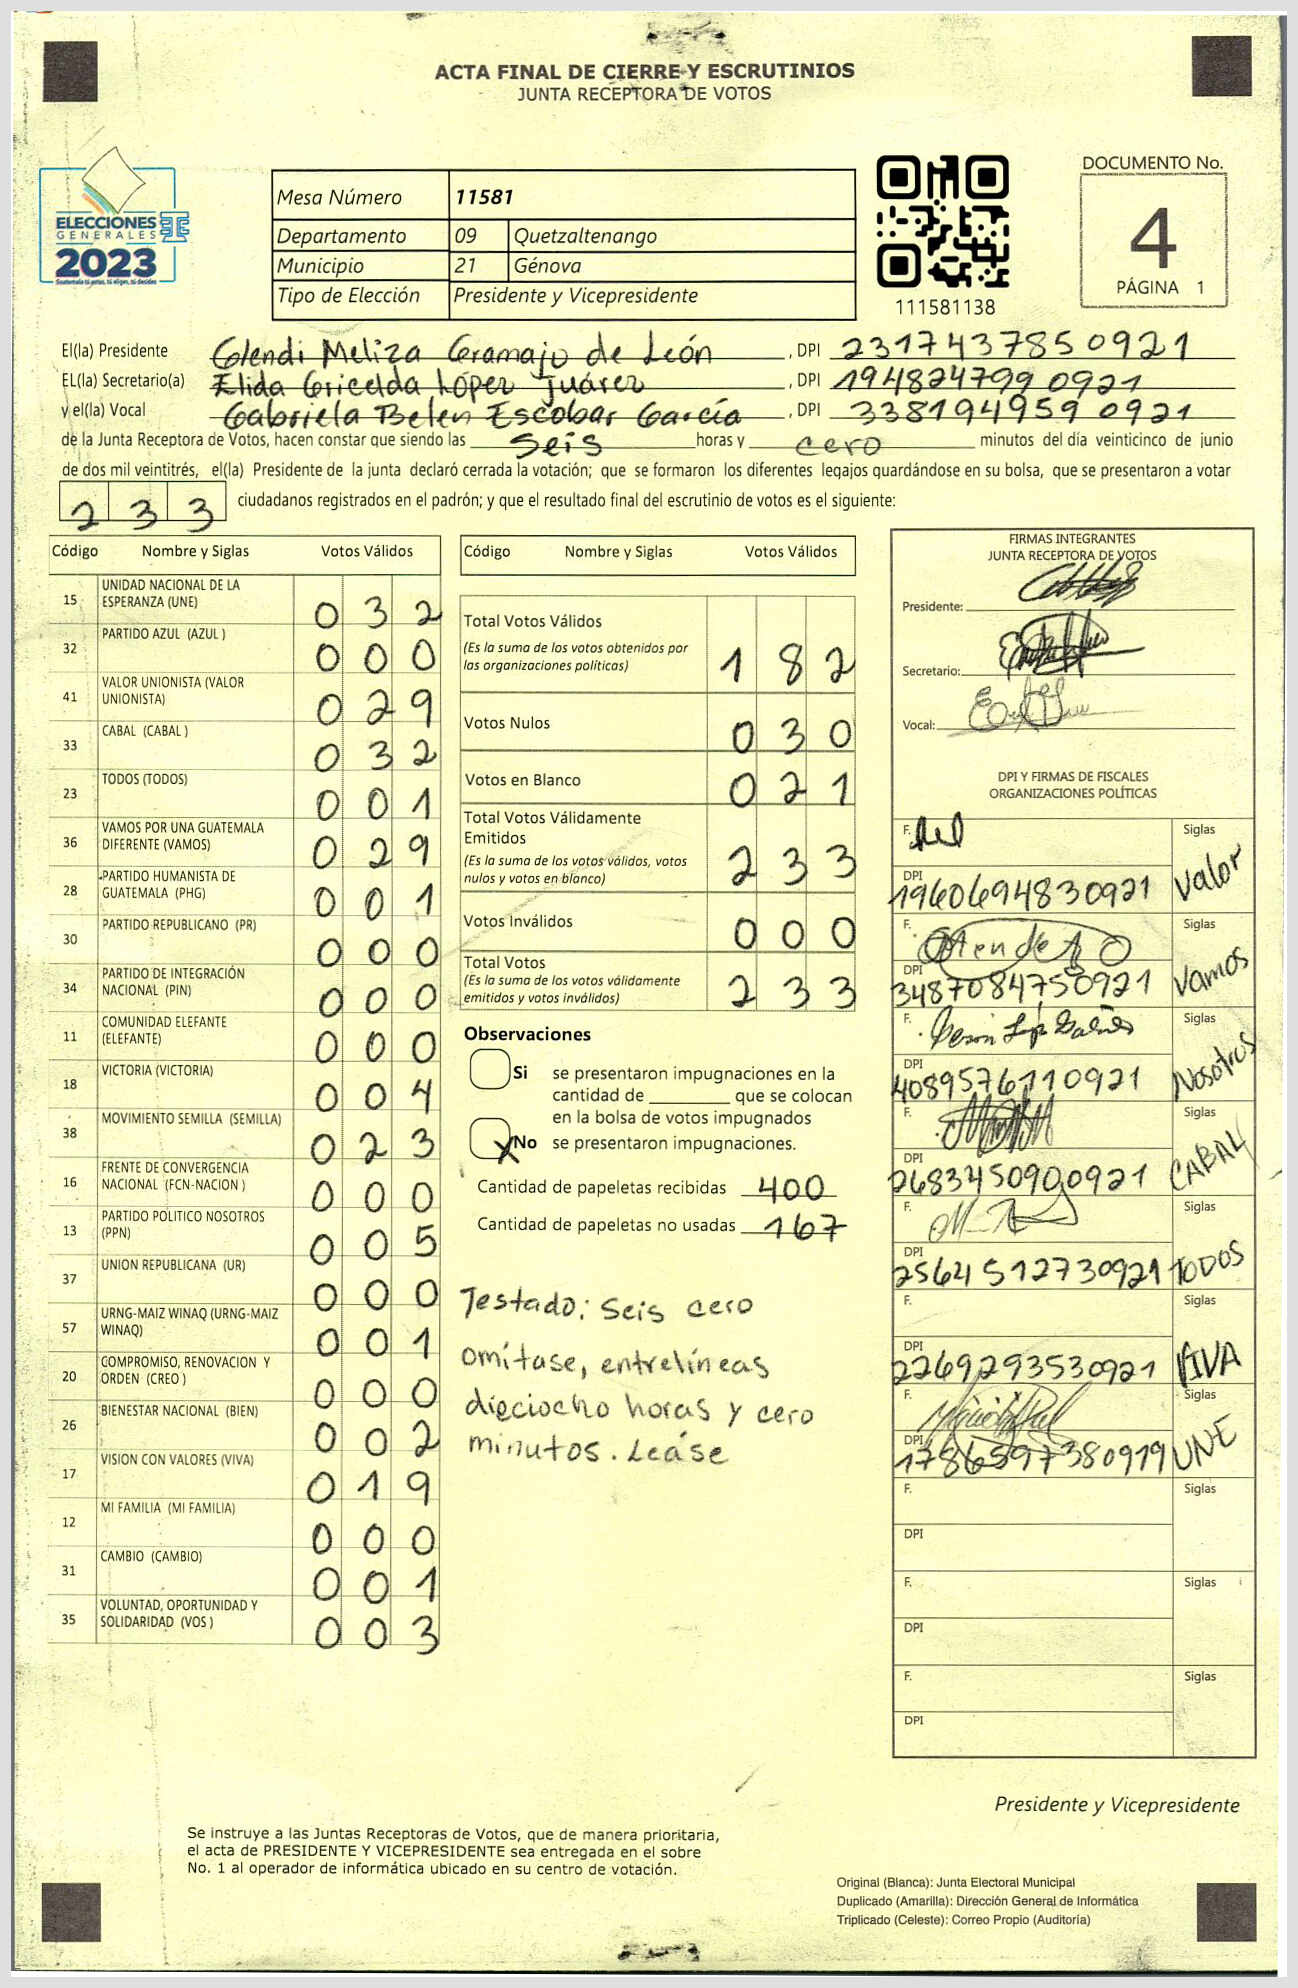 ACTA FINAL DE CIERRE Y ESCRUTINIOS
JUNTA RECEPTORA DE VOTOS
ELECCIONES
GENERALES
2023
Guatemala tú votas, tú eliges, tú decides
Mesa Número 11581
Departamento 09 Quetzaltenango
Municipio 21 Génova
Tipo de Elección Presidente y Vicepresidente
111581138
DOCUMENTO No.
4
PÁGINA 1
El(la) Presidente Glendi Meliza Gramajo de León, DPI 2317437850921
EL(la) Secretario(a) Elida Gricelda López Juárez, DPI 1948247990921
y el(la) Vocal Gabriela Belen Escobar García, DPI 3381949590921
de la Junta Receptora de Votos, hacen constar que siendo las Seis horas y cero minutos del día veinticinco de junio
de dos mil veintitrés, el(la) Presidente de la junta declaró cerrada la votación; que se formaron los diferentes legajos guardándose en su bolsa, que se presentaron a votar
233 ciudadanos registrados en el padrón; y que el resultado final del escrutinio de votos es el siguiente:
Código Nombre y Siglas Votos Válidos
15 UNIDAD NACIONAL DE LA ESPERANZA (UNE) 032
32 PARTIDO AZUL (AZUL ) 000
41 VALOR UNIONISTA (VALOR UNIONISTA) 029
33 CABAL (CABAL ) 032
23 TODOS (TODOS) 001
36 VAMOS POR UNA GUATEMALA DIFERENTE (VAMOS) 029
28 PARTIDO HUMANISTA DE GUATEMALA (PHG) 001
30 PARTIDO REPUBLICANO (PR) 000
34 PARTIDO DE INTEGRACIÓN NACIONAL (PIN) 000
11 COMUNIDAD ELEFANTE (ELEFANTE) 000
18 VICTORIA (VICTORIA) 004
38 MOVIMIENTO SEMILLA (SEMILLA) 023
16 FRENTE DE CONVERGENCIA NACIONAL (FCN-NACION ) 000
13 PARTIDO POLITICO NOSOTROS (PPN) 005
37 UNION REPUBLICANA (UR) 000
57 URNG-MAIZ WINAQ (URNG-MAIZ WINAQ) 001
20 COMPROMISO, RENOVACION Y ORDEN (CREO ) 000
26 BIENESTAR NACIONAL (BIEN) 002
17 VISION CON VALORES (VIVA) 019
12 MI FAMILIA (MI FAMILIA) 000
31 CAMBIO (CAMBIO) 001
35 VOLUNTAD, OPORTUNIDAD Y SOLIDARIDAD (VOS ) 003
Código Nombre y Siglas Votos Válidos
Total Votos Válidos 182
(Es la suma de los votos obtenidos por
las organizaciones políticas)
Votos Nulos 030
Votos en Blanco 021
Total Votos Válidamente
Emitidos 233
(Es la suma de los votos válidos, votos
nulos y votos en blanco)
Votos Inválidos 000
Total Votos 233
(Es la suma de los votos válidamente
emitidos y votos inválidos)
Observaciones
Si se presentaron impugnaciones en la
cantidad de ________ que se colocan
en la bolsa de votos impugnados
X No se presentaron impugnaciones.
Cantidad de papeletas recibidas 400
Cantidad de papeletas no usadas 167
Testado: Seis cero
omítase, entrelíneas
dieciocho horas y cero
minutos. Leáse
FIRMAS INTEGRANTES
JUNTA RECEPTORA DE VOTOS
Presidente:
Secretario:
Vocal:
DPI Y FIRMAS DE FISCALES
ORGANIZACIONES POLÍTICAS
F. Siglas
DPI 1960694830921 Valor
F. Siglas
DPI 3487084750921 Vamos
F. Siglas
DPI 4089576110921 Nosotros
F. Siglas
DPI 2683450900921 CABAL
F. Siglas
DPI 2564512730921 TODOS
F. Siglas
DPI 2269293530921 VIVA
F. Siglas
DPI 1786597380919 UNE
F. Siglas
DPI
F. Siglas
DPI
F. Siglas
DPI
Presidente y Vicepresidente
Se instruye a las Juntas Receptoras de Votos, que de manera prioritaria,
el acta de PRESIDENTE Y VICEPRESIDENTE sea entregada en el sobre
No. 1 al operador de informática ubicado en su centro de votación.
Original (Blanca): Junta Electoral Municipal
Duplicado (Amarilla): Dirección General de Informática
Triplicado (Celeste): Correo Propio (Auditoría)